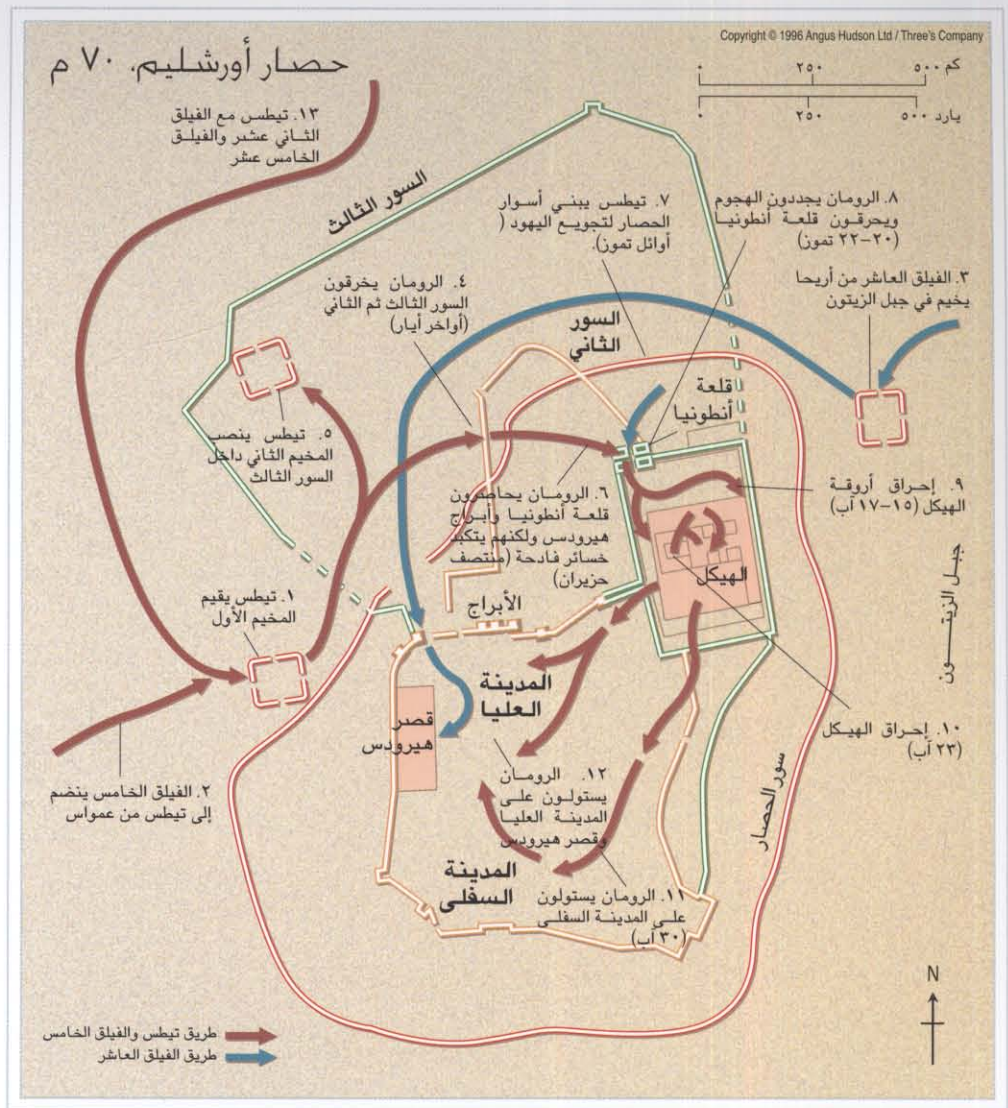 Copyright © 1996 Angus Hudson Ltd / Three's Company
حصار أورشليم، ٧٠ م
٠ ٢٥٠ ٥٠٠ كم
٠ ٢٥٠ ٥٠٠ يارد
١٣. تيطس مع الفيلق
الثاني عشر والفيلق
الخامس عشر
السور الثالث
٧. تيطس يبني أسوار
الحصار لتجويع اليهود (
أوائل تموز).
٨. الرومان يجددون الهجوم
ويحرقون قلعة أنطونيا
(٢٠-٢٢ تموز)
٣. الفيلق العاشر من أريحا
يخيم في جبل الزيتون
٤. الرومان يخرقون
السور الثالث ثم الثاني
(أواخر أيار)
السور
الثاني
قلعة
أنطونيا
٥. تيطس ينصب
المخيم الثاني داخل
السور الثالث
٦. الرومان يحاصرون
قلعة أنطونيا وأبراج
هيرودس ولكنهم يتكبد
خسائر فادحة (منتصف
حزيران)
٩. إحراق أروقة
الهيكل (١٥-١٧ آب)
الهيكل
جبل الزيتون
١. تيطس يقيم
المخيم الأول
الأبراج
المدينة
العليا
قصر
هيرودس
١٠. إحراق الهيكل
(٢٣ آب)
٢. الفيلق الخامس ينضم
إلى تيطس من عمواس
١٢. الرومان
يستولون على
المدينة العليا
وقصر هيرودس
سور الحصار
المدينة
السفلى
١١. الرومان يستولون
على المدينة السفلى
(٣٠ آب)
N
طريق تيطس والفيلق الخامس
طريق الفيلق العاشر